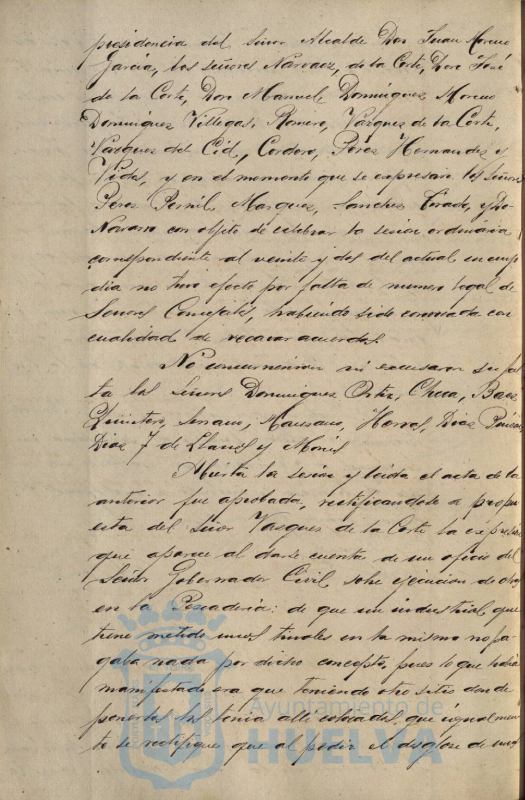 presidencia del Señor Alcalde Don Juan Moreno
García, los señores Narvaez, de la Corte, Don José
de la Corte, Don Manuel Dominguez, Moreno
Dominguez, Villegas, Romero, Vázquez de la Corte,
Vazquez del Cid, Cordero, Pérez Hernandez y
Vides, y en el momento que se expresara los Señores
Perez Pernil, Marquez, Sanchez y
Navarro con objeto de celebrar la sesion ordinaria
correspondiente al veinte y dos del actual en cuyo
dia no tuvo efecto por falta de numero legal de
Señores Concejales, habiendo sido convocada con
cualidad de recaer acuerdos.
No concurrieron ni excusaron su fal
ta los Señores Dominguez Ortiz, Checa, Baez
Quintero, Serrano, Manzano, Diaz
Diaz F de Llanos y
Abierta la sesion y leida el acta de la
anterior fue aprobada, rectificandose a propu
esta del Señor Vazquez de la Corte la expresion
que aparece al darse cuenta de un oficio del
Señor Gobernador Civil sobre ejecucion de obras
en la Pescaderia: de que un industrial que
tiene metido unos en la misma no pa
gaba nada por dicho concepto, pues lo que habia
manifestado era que teniendo otro sitio donde
ponerlos los tenia alli colocados, que igualmen
te se rectifique que al pedir el desglose de unos
Ayuntamiento de
HUELVA